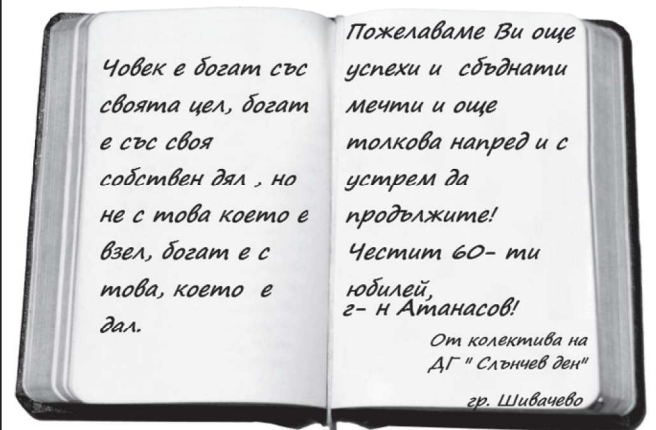 Човек е богат със
своята цел, богат
е със своя
собствен дял , но
не с това което е
взел, богат е с
това, което е
дал.
Пожелаваме Ви още
успехи и сбъднати
мечти и още
толкова напред и с
устрем да
продължите!
Честит 60- ти
юбилей,
г- н Атанасов!
От колектива на
ДГ " Слънчев ден"
гр. Шивачево